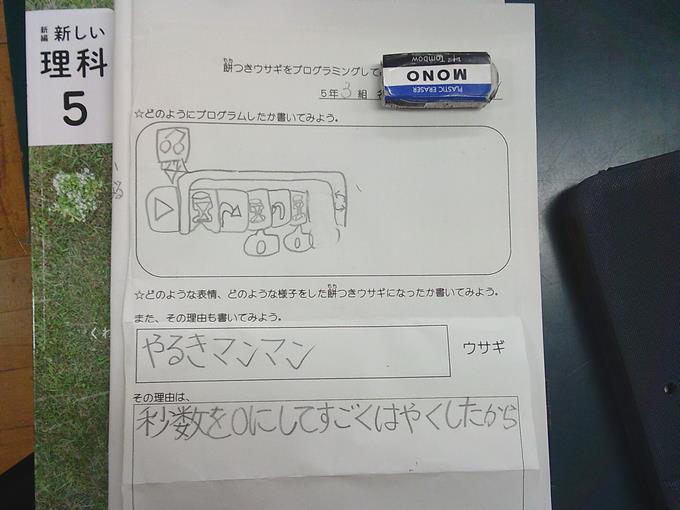 新編 新しい
理科
5
餅つきウサギをプログラミングして
もち
5年 3 組
PLASTIC ERASER
MONO
Tombow
☆どのようにプログラムしたか書いてみよう。
0 0
☆どのような表情、どのような様子をした餅つきウサギになったか書いてみよう。
もち
また、その理由も書いてみよう。
やるきマンマン ウサギ
その理由は、
秒数を0にしてすごくはやくしたから
くわ